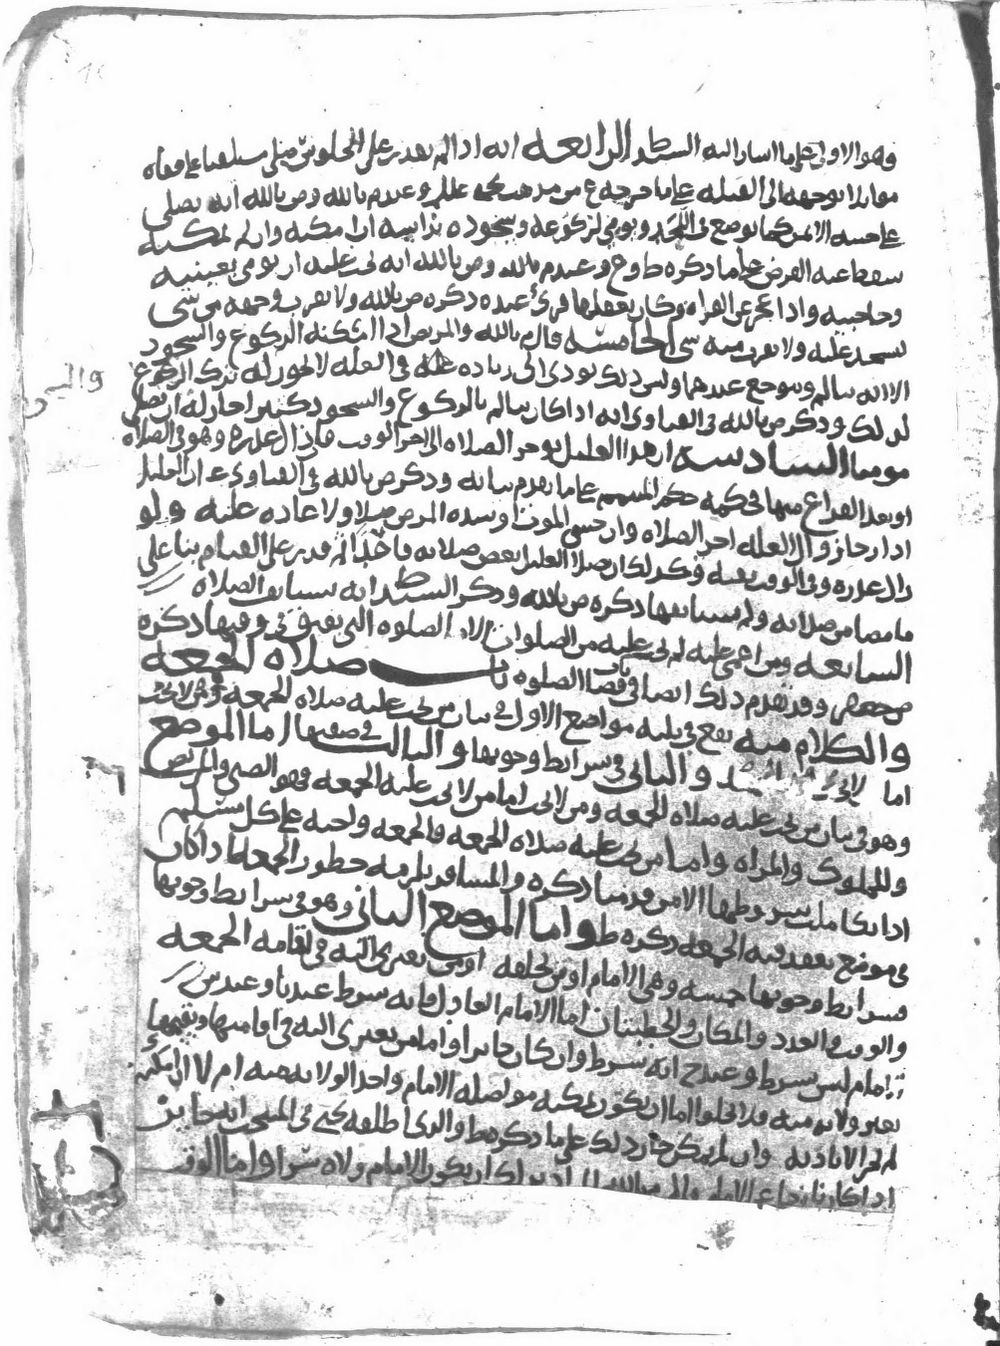 وهو الاولى على ما اشار اليه السيد ط الرابعه انه اذا لم يقدر على الجلوس صلى مستلقيا على قفاه
موازيا بوجهه الى القبله على ما خرجه ع من مذهب يحيى عللم وعند م بالله وص بالله انه يصلي
على جنبه الايمن كما يوضع في اللحد ويومي لركوعه وسجوده براسه ان امكنه وان لم يمكنه
سقط عنه الفرض على ما ذكره ط وع وعند م بالله وص بالله انه يجب عليه ان يومي بعينيه
وحاجبيه واذا عجز عن القراه وكان يعقلها قرئ عنده ذكره ص بالله ولا يقرب وجهه من شي
يسجد عليه ولا يقرب منه شي الخامسه قال م بالله والمريض اذا امكنه الركوع والسجود
الا انه يالم ويتوجع عندهما وليس ذلك يودي الى زياده عله في العله لا يجوز له ترك الركوع
لذلك وذكر ص بالله في الفتاوى انه اذا كان يالم بالركوع والسجود كثيرا جاز له ان يصلي
موميا السادسه ان هذا العليل يوخر الصلاه الى اخر الوقت فان زال عذره وهو في الصلاه
او بعد الفراغ منها فحكمه حكم المتيمم على ما تقدم بيانه وذكر ص بالله في الفتاوى ان العليل
اذا رجا زوال العله اخر الصلاه وان خشي الموت او شده المرض صلا ولا اعاده عليه ولو
زال عذره وفي الوقت بقيه وكذلك ان صلا العليل بعض صلاته قاعدا ثم قدر على القيام بنا على
ما مضا من صلاته ولم يستانفها ذكره ص بالله وذكر السيد ط انه يستانف الصلاه
السابعه ومن اغمي عليه لم يجب عليه من الصلوات الا الصلوه التي يفيق في وقتها ذكره
وقد تقدم ذلك ايضا في قضا الصلوه باب صلاه الجمعه
والكلام منه يقع في ثلثه مواضع الاول في بيان من تجب عليه صلاه الجمعه ومن لا تجب
والثاني في شرايط وجوبها والثالث في صفتها اما الموضع
وهو في بيان من تجب عليه صلاه الجمعه ومن لا تجب اما من لا تجب عليه الجمعه فهو الصبي والمريض
والمملوك والمراه واما من تجب عليه صلاه الجمعه فالجمعه واجبه على كل مسلم
اذا تكاملت شروطها الا من قدمنا ذكره والمسافر يلزمه حضور الجمعه اذا كان
في موضع يعقد فيه الجمعه ذكره ط واما الموضع الثاني وهو في شرايط وجوبها
فشرايط وجوبها خمسه وهي الامام او من يخلفه او من يعتزي اليه في اقامه الجمعه
والوقت والعدد والمكان والخطبتان اما الامام العادل فانه شرط عندنا وعند ش
امام ليس بشرط وعند ح انه شرط وان كان جائرا واما من يعتزي اليه في اقامتها ويقيمها
بغير ولايه منه فلا يخلوا اما ان يكون يمكنه مواصله الامام واخذ الولايه منه ام لا ان امكنه
لم يجز الا باذنه وان لم يمكن جاز ذلك على ما ذكره ط والذي اطلقه يحيى في المنتخب انه جايز